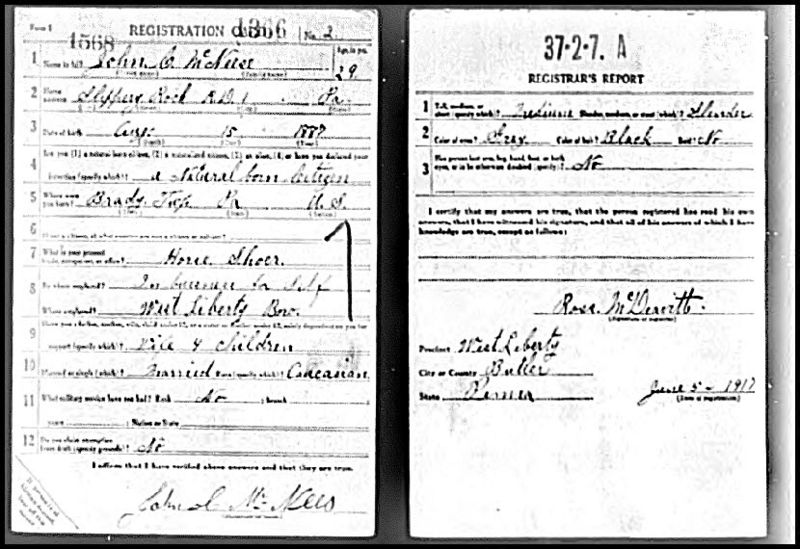 Form 1
1568
REGISTRATION CARD
1366
No. 2
1 Name in full John McNeese Age, in yrs. 29
2 Home address Slippery Rock R.D. 1 Pa
3 Date of birth Aug 15 1887
4 Are you (1) a natural born citizen, (2) a naturalized citizen, (3) an alien, (4) or have you declared your
intention (specify which)? a Natural born Citizen
5 Where were you born? Brady Twp. Pa U.S.
6
7 What is your present trade, occupation, or office? Horse Shoer
8 By whom employed? In business for Self
Where employed? West Liberty Boro.
9 Have you a father, mother, wife, child under 12, or a sister or brother under 12, solely dependent on you for
support (specify which)? Wife & Children
10 Married or single (which)? Married Race (specify which)? Caucasian
11 What military service have you had? Rank No branch
years Nation or State
12 Do you claim exemption from draft (specify grounds)? No
I affirm that I have verified above answers and that they are true.
John McNees
37-2-7. A
REGISTRAR'S REPORT
1 Tall, medium, or short (specify which)? Medium Slender, medium, or stout (which)? Slender
2 Color of eyes? Gray Color of hair? Black Bald? No
3 Has person lost arm, leg, hand, foot, or both eyes, or is he otherwise disabled (specify)? No
I certify that my answers are true, that the person registered has read his own
answers, that I have witnessed his signature, and that all of his answers of which I have
knowledge are true, except as follows:
Rose McDevitt
(Signature of registrar)
Precinct West Liberty
City or County Butler
State Penna
June 5 - 1917
(Date of registration)